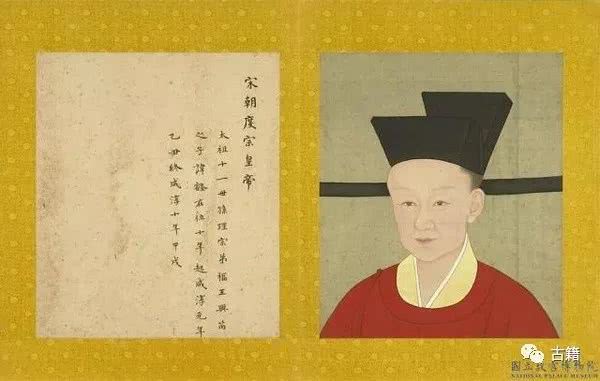 宋朝度宗皇帝
太祖十一世孫理宗弟福王與芮
之子諱禥在位十年起咸淳元年
乙丑終咸淳十年甲戌
古籍
國立故宮博物院
NATIONAL PALACE MUSEUM